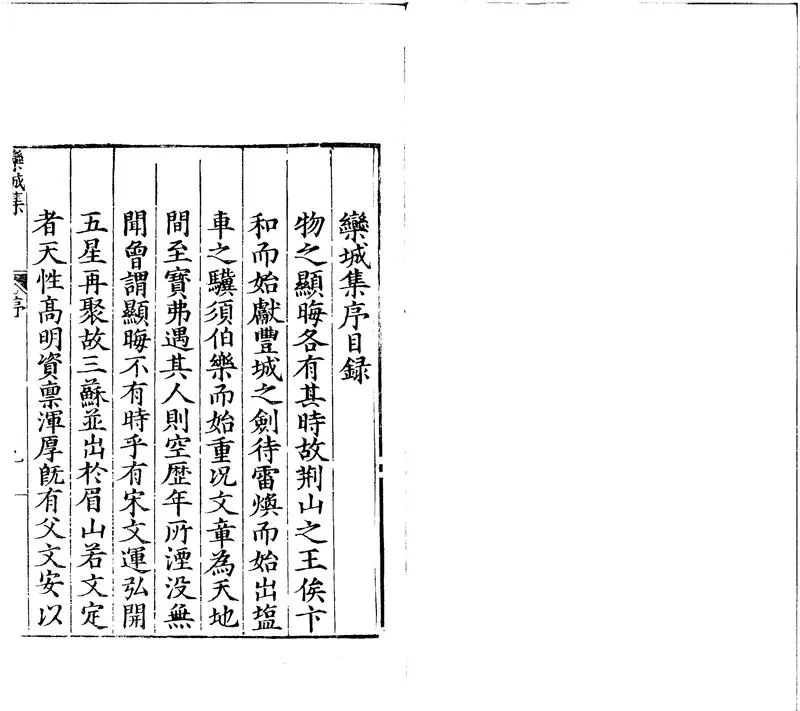 欒城集序目録
物之顯晦各有其時故荆山之王俟卞
和而始獻豐城之劍待雷煥而始出塩
車之驥須伯樂而始重况文章為天地
間至寳弗遇其人則空歴年所湮没無
聞曾謂顯晦不有時乎有宋文運弘開
五星再聚故三蘇並出於眉山若文定
者天性髙明資禀渾厚旣有父文安以
欒城集
序